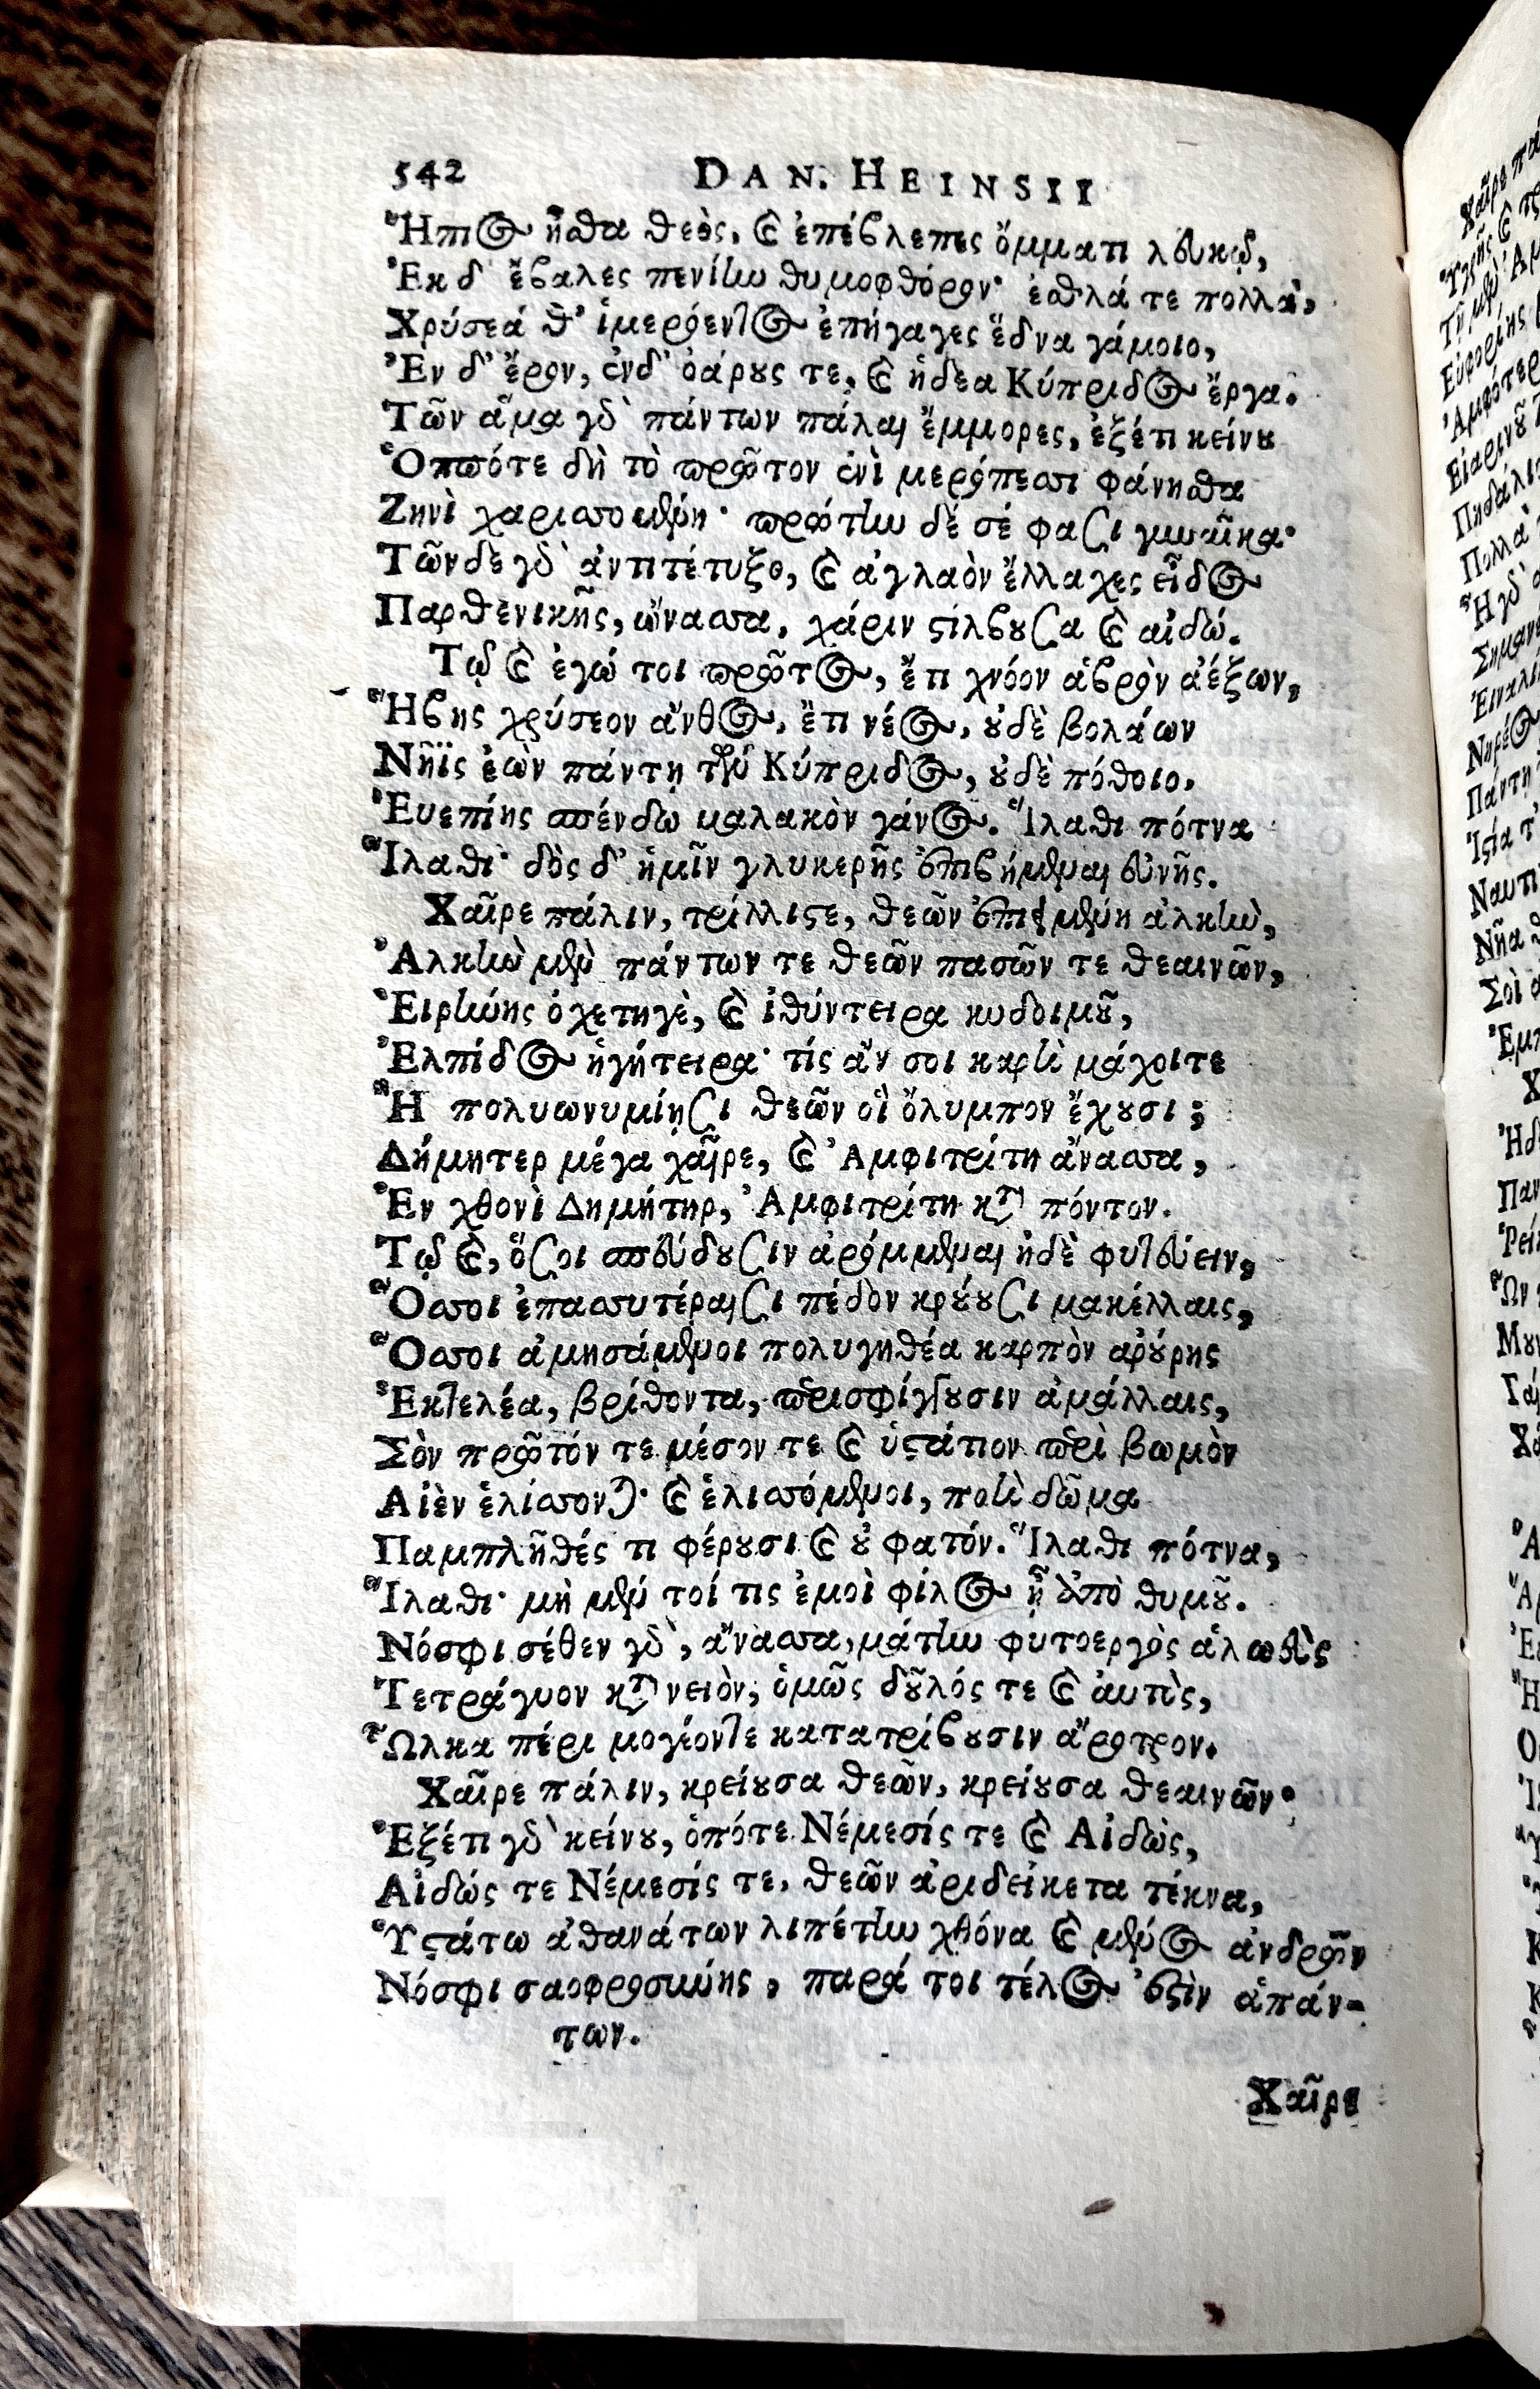 542 DAN. HEINSII
Ἤπιος ἦσθα θεὸς, καὶ ἐπέβλεπες ὄμματι λευκῷ,
Ἐκ δ' ἔβαλες πενίην θυμοφθόρον· ἐσθλά τε πολλὰ,
Χρύσεά θ' ἱμερόεντος ἐπήγαγες ἕδνα γάμοιο,
Ἐν δ' ἔρον, ἐνδ' ὀάρους τε, καὶ ἡδέα Κύπριδος ἔργα.
Τῶν ἅμα γὰρ πάντων πάλαι ἔμμορες, ἐξέτι κείνου
Ὁππότε δὴ τὸ πρῶτον ἐνὶ μερόπεσσι φάνησθα
Ζηνὶ χαρισσομένη· πρώτην δέ σέ φασι γυναῖκα·
Τῶνδε γὰρ ἀντιτέτυξο, καὶ ἀγλαὸν ἔλλαχες εἶδος
Παρθενικῆς, ὤνασσα, χάριν στίλβουσα καὶ αἰδώ.
Τῷ καὶ ἐγώ τοι πρῶτος, ἔτι χνόον ἁβρὸν ἀέξων,
Ἥβης χρύσεον ἄνθος, ἔτι νέος, οὐδὲ βολάων
Νῆϊς ἐὼν πάντῃ τῶν Κύπριδος, οὐδὲ πόθοιο,
Ἐυεπίης σπένδω μαλακὸν γάνος. Ἵλαθι πότνα
Ἵλαθι· δὸς δ' ἡμῖν γλυκερῆς ἐπιβήμεναι εὐνῆς.
Χαῖρε πάλιν, τρίλλιστε, θεῶν ἐπιειμένη ἀλκὴν,
Ἀλκὴν μὲν πάντων τε θεῶν πασῶν τε θεαινῶν,
Εἰρήνης ὀχετηγὲ, καὶ ἰθύντειρα κυδοιμοῦ,
Ἐλπίδος ἡγήτειρα· τίς ἄν σοι καρτὶ μάχοιτε
Ἢ πολυωνυμίῃσι θεῶν οἳ ὄλυμπον ἔχουσι;
Δήμητερ μέγα χαῖρε, καὶ Ἀμφιτρίτη ἄνασσα,
Ἐν χθονὶ Δημήτηρ, Ἀμφιτρίτη κατὰ πόντον.
Τῷ καὶ, ὅσοι σπεύδουσιν ἀρόμμεναι ἠδὲ φυτεύειν,
Ὅσσοι ἐπασσυτέραισι πέδον κρούουσι μακέλλαις,
Ὅσσοι ἀμησάμενοι πολυγηθέα καρπὸν ἀρούρης
Ἐκτελέα, βρίθοντα, περισφίγγουσιν ἀμάλλαις,
Σὸν πρῶτόν τε μέσον τε καὶ ὑστάτιον περὶ βωμὸν
Αἰὲν ἑλίσσονται· καὶ ἑλισσόμενοι, ποτὶ δῶμα
Παμπλῆθές τι φέρουσι καὶ οὐ φατόν. Ἵλαθι πότνα,
Ἵλαθι· μὴ μέν τοί τις ἐμοὶ φίλος ᾖ ἀπὸ θυμοῦ.
Νόσφι σέθεν γὰρ, ἄνασσα, μάτην φυτοεργὸς ἀλωεὺς
Τετράγυον κατὰ νειὸν, ὁμῶς δοῦλός τε καὶ αυτὸς,
Ὦλκα πέρι μογέοντε κατατρίβουσιν ἄροτρον.
Χαῖρε πάλιν, κρείουσα θεῶν, κρείουσα θεαινῶν·
Ἐξέτι γὰρ κείνου, ὁπότε Νέμεσίς τε καὶ Αἰδὼς,
Αἰδώς τε Νέμεσίς τε, θεῶν ἀριδείκετα τέκνα,
Ὑστάτω ἀθανάτων λιπέτην χθόνα καὶ μένος ἀνδρῶν
Νόσφι σαοφροσύνης, παρά τοι τέλος ἐστὶν ἁπάν-
των.
Χαῖρε